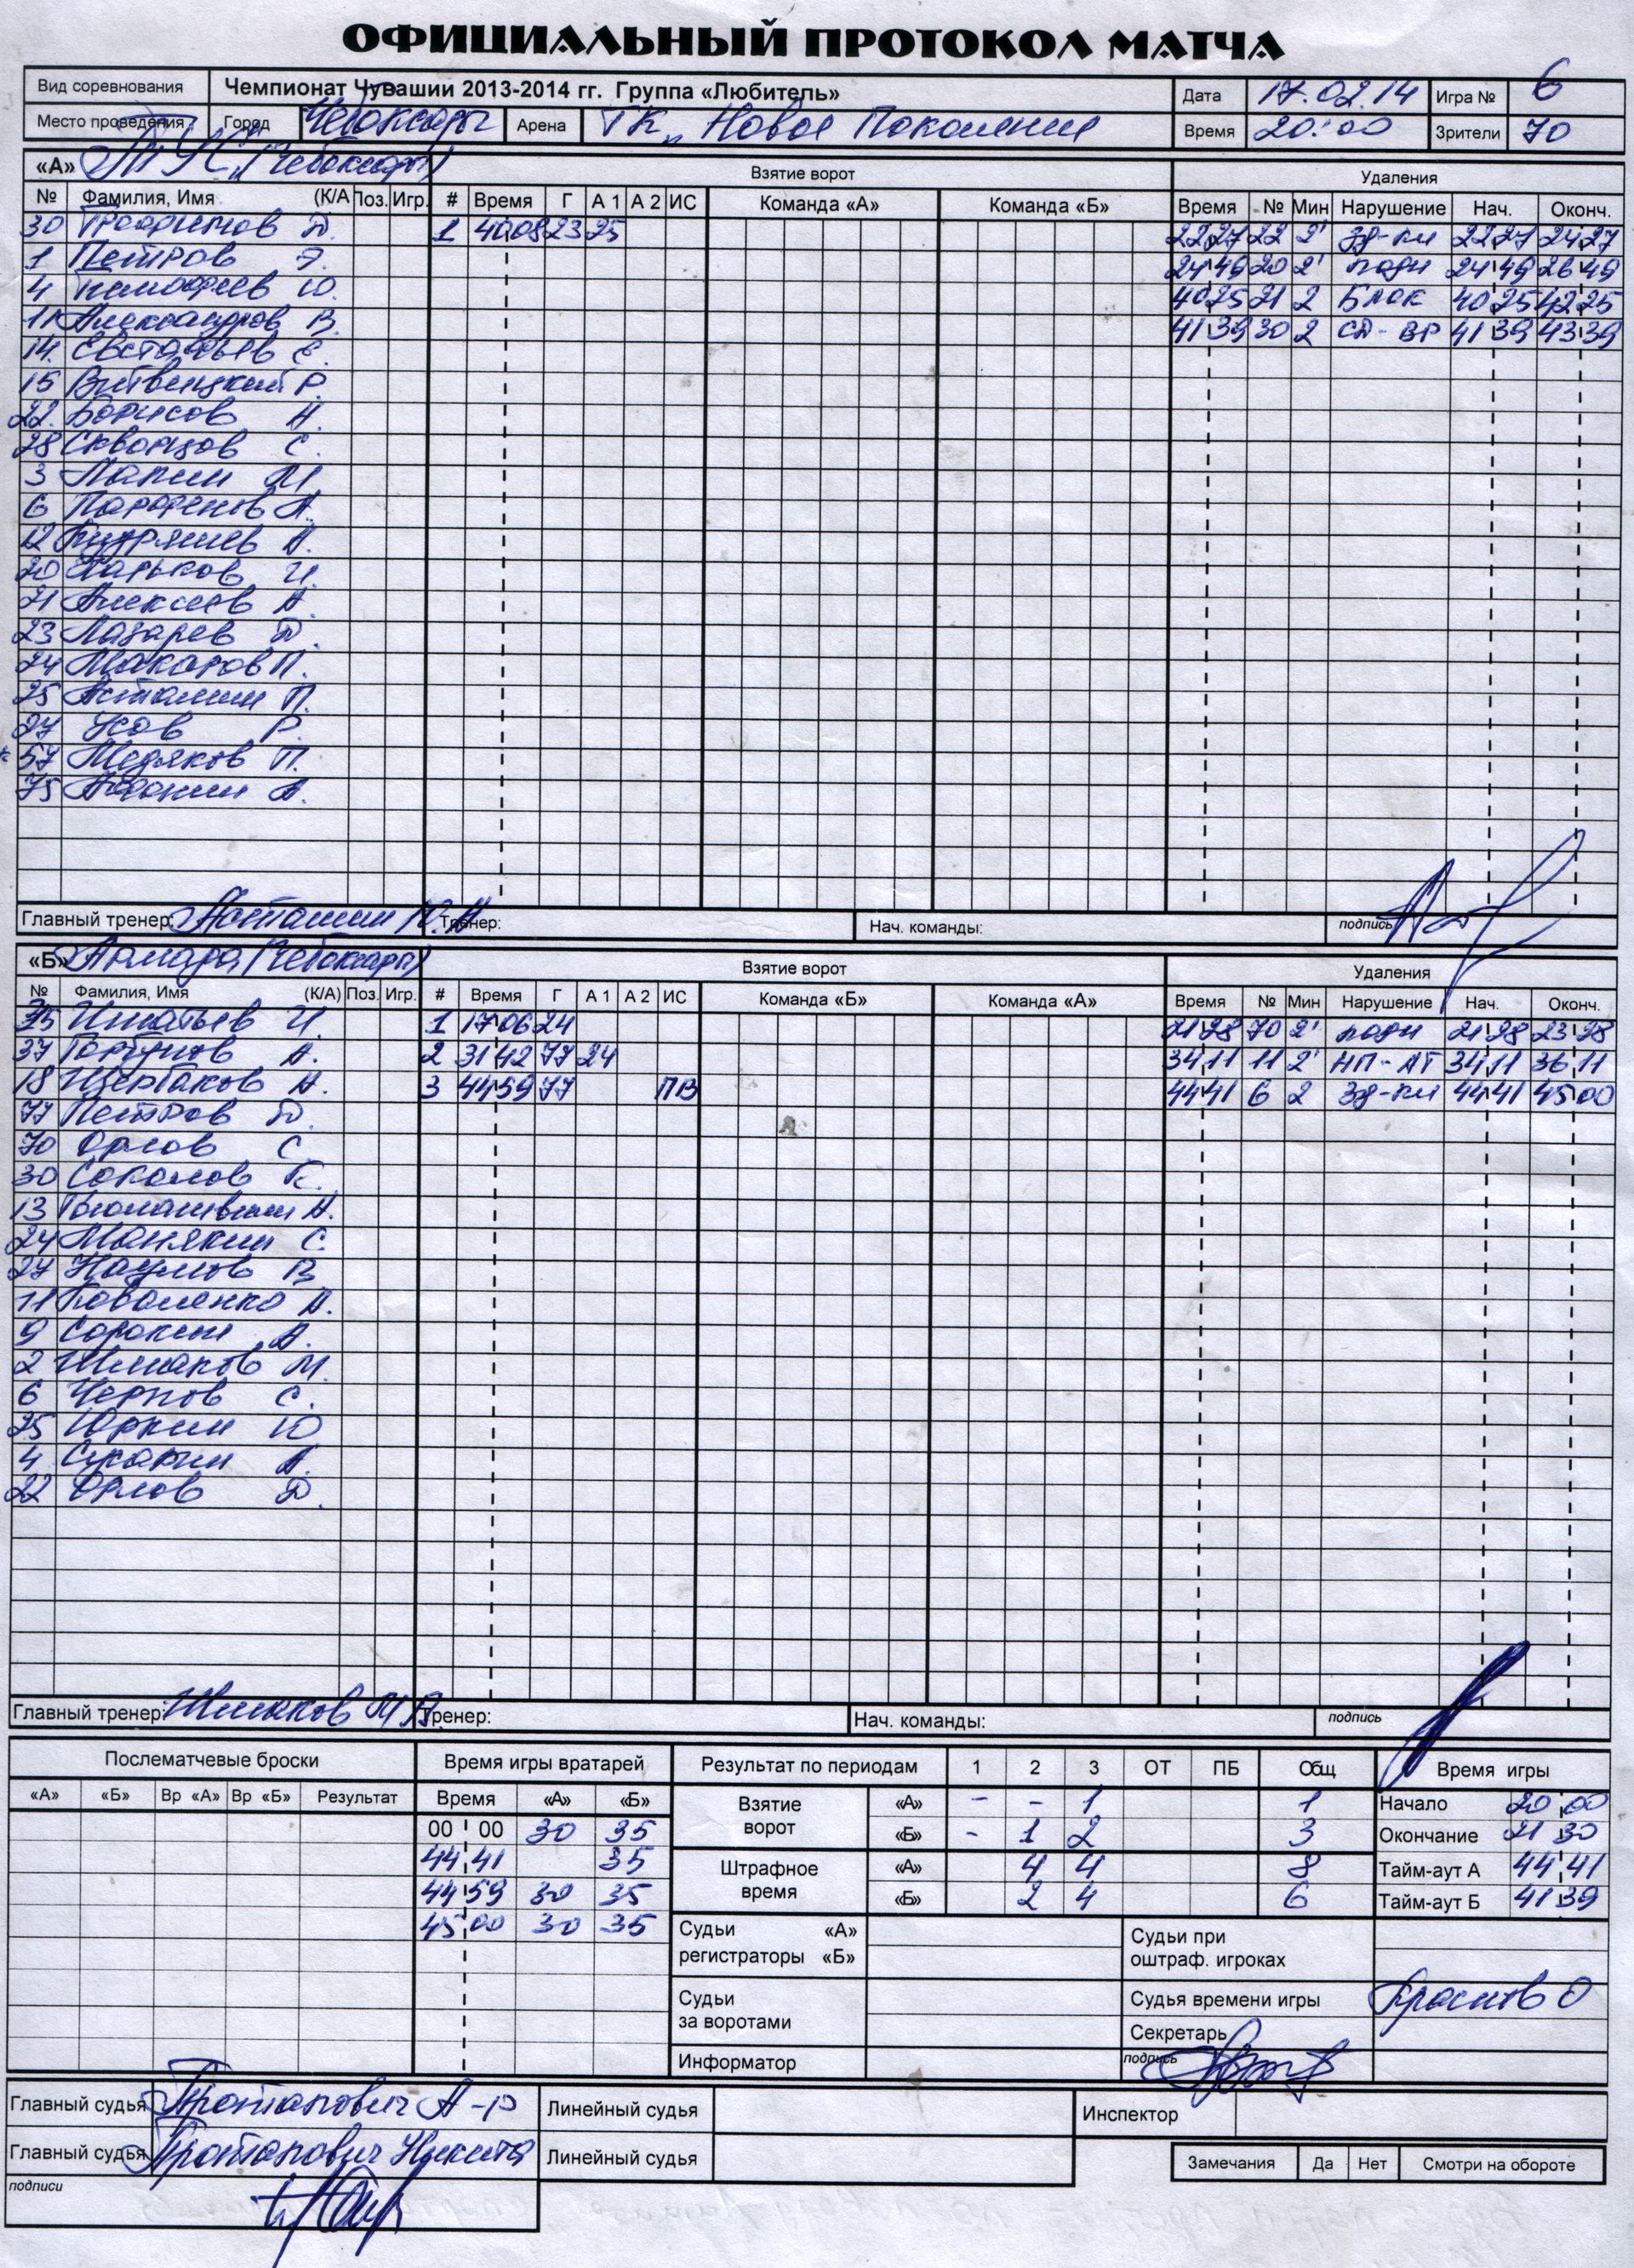 ОФИЦИАЛЬНЫЙ ПРОТОКОЛ МАТЧА
Вид соревнования Чемпионат Чувашии 2013-2014 гг. Группа «Любитель» Дата 17.02.14 Игра № 6
Место проведения Город Чебоксары Арена ТК „Новое Поколение Время 20:00 Зрители 70
«А» (Чебоксары) Взятие ворот Удаления
№ Фамилия, Имя (К/А Поз. Игр. # Время Г А 1 А 2 ИС Команда «А» Команда «Б» Время № Мин Нарушение Нач. Оконч.
30 Трофимов Д. 1 40 08 23 25 22 27 22 2' зд-кл 22 27 24 27
1 Петров Э. 24 49 20 2' подн 24 49 26 49
4 Тимофеев Ю. 40 25 21 2 Блок 40 25 42 25
11 Александров В. 41 39 30 2 сд-вр 41 39 43 39
14. Евстафьев Е.
15 Витвицкий Р.
22. Борисов А.
28 Скворцов С.
3 Лапин М.
6 Парфенов А.
12 Кудряшев А.
20 Харьков И.
21 Алексеев А.
23 Лазарев Д.
24 Макаров П.
25 Асташин П.
27 Усов Р.
57 Медяков П.
75 А.
Главный тренер: Асташин Ю.А Тренер: Нач. команды: подпись
«Б» Армада (Чебоксары) Взятие ворот Удаления
№ Фамилия, Имя (К/А) Поз. Игр. # Время Г А 1 А 2 ИС Команда «Б» Команда «А» Время № Мин Нарушение Нач. Оконч.
35 Игнатьев И. 1 17 06 24 21 28 70 2' подн 21 28 23 28
37 Горбунов А. 2 31 42 77 24 34 11 11 2' НП-АТ 34 11 36 11
18 Щербаков А. 3 44 59 77 ПВ 44 41 6 2 Зд-кл 44 41 45 00
77 Петров Д.
70 Орлов С.
30 Соколов К.
13 А.
24 Манякин С.
27 Наумов В
11 Коваленко А.
9 Сорокин А.
2 Шмаков М.
6 Чернов С.
25 Юркин Ю
4 А.
22 Орлов Д.
Главный тренер: Шмаков М Тренер: Нач. команды: подпись
Послематчевые броски Время игры вратарей Результат по периодам 1 2 3 ОТ ПБ Общ Время игры
«А» «Б» Вр «А» Вр «Б» Результат Время «А» «Б» Взятие ворот «А» - - 1 1 Начало 20 00
00 00 30 35 «Б» - 1 2 3 Окончание 21 30
44 41 35 Штрафное время «А» 4 4 8 Тайм-аут А 44 41
44 59 30 35 «Б» 2 4 6 Тайм-аут Б 41 39
45 00 30 35 Судьи «А» Судьи при
регистраторы «Б» оштраф. игроках
Судьи Судья времени игры Краснов О
за воротами Секретарь
Информатор подпись
Главный судья Протапович А-р Линейный судья Инспектор
Главный судья Протапович Никита Линейный судья Замечания Да Нет Смотри на обороте
подписи